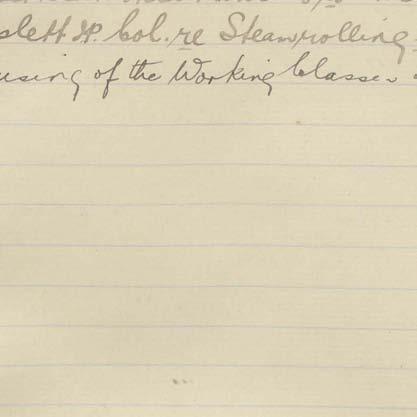 slett JP. Col. re Steamrolling
using of the Working Classes